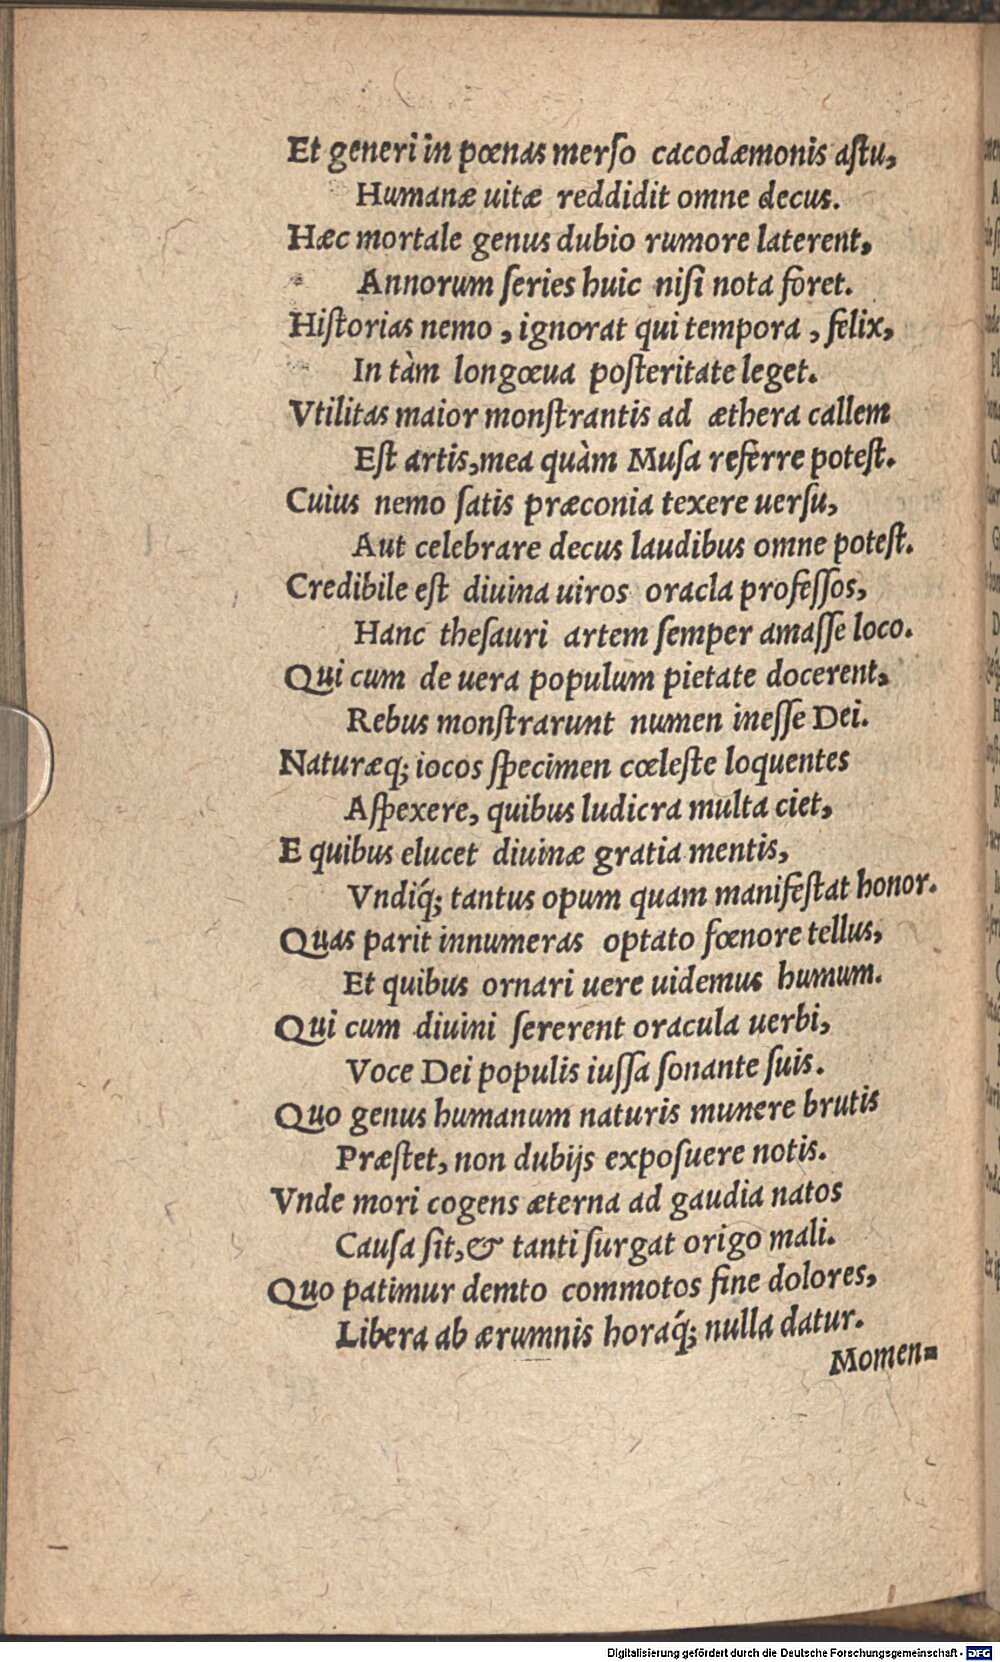 Et generi in pœnas merſo cacodæmonis aſtu,
Humanæ uitæ reddidit omne decus.
Hæc mortale genus dubio rumore laterent,
Annorum ſeries huic niſi nota foret.
Hiſtorias nemo, ignorat qui tempora, felix,
In tàm longœua poſteritate leget.
Vtilitas maior monſtrantis ad æthera callem
Eſt artis, mea quàm Muſa referre poteſt.
Cuius nemo ſatis præconia texere uerſu,
Aut celebrare decus laudibus omne poteſt.
Credibile eſt diuina uiros oracla profeſſos,
Hanc theſauri artem ſemper amaſſe loco.
Qui cum de uera populum pietate docerent,
Rebus monſtrarunt numen ineſſe Dei.
Naturæq; iocos ſpecimen cœleſte loquentes
Aſpexere, quibus ludicra multa ciet,
E quibus elucet diuinæ gratia mentis,
Vndiq́; tantus opum quam manifeſtat honor.
Quas parit innumeras optato fœnore tellus,
Et quibus ornari uere uidemus humum.
Qui cum diuini ſererent oracula uerbi,
Voce Dei populis iuſſa ſonante ſuis.
Quo genus humanum naturis munere brutis
Præſtet, non dubijs expoſuere notis.
Vnde mori cogens æterna ad gaudia natos
Cauſa ſit, & tanti ſurgat origo mali.
Quo patimur demto commotos fine dolores,
Libera ab ærumnis horaq́; nulla datur.
Momen=
Digitalisierung gefördert durch die Deutsche Forschungsgemeinschaft - DFG